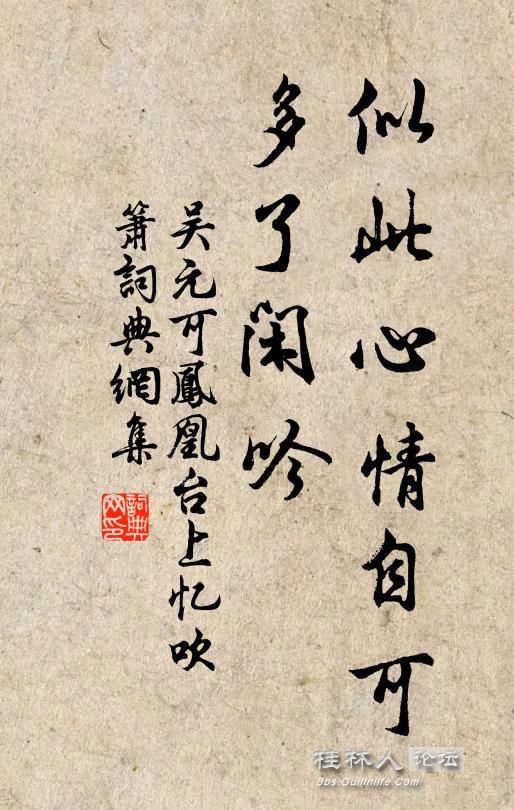 似此心情自可
多了闲吟
吴元可鳳凰台上忆吹
箫詞典網集
詞典网印
桂林人论坛
Bbs.Guilinlife.Com